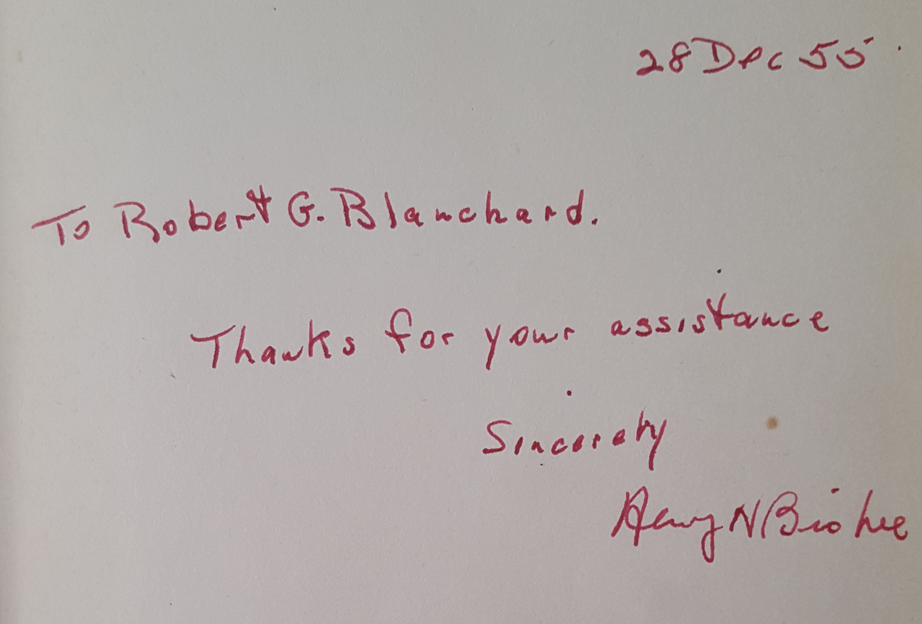 28 Dec 55
To Robert G. Blanchard.
Thanks for your assistance
Sincerely
Henry N